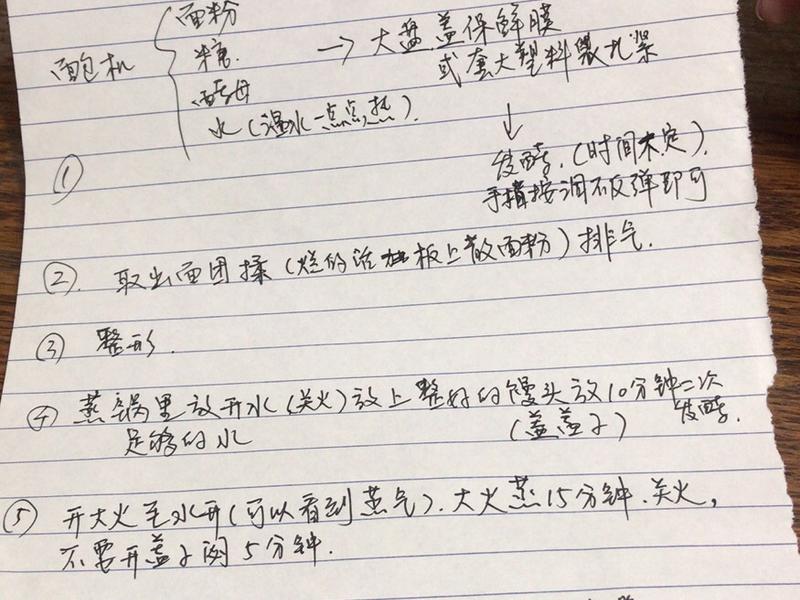 面包机
面粉
糖.
酵母
水(温水一点点,热).
→ 大盘.盖保鲜膜
或套大塑料袋扎紧
↓
发酵.(时间未定).
手指按洞不反弹即可
①
②. 取出面团揉(烂的话在板上散面粉)排气.
③ 整形.
④ 蒸锅里放开水(关火)放上整好的馒头放10分钟二次
足够的水
(盖盖子)
发酵.
⑤ 开大火至水开(可以看到蒸气).大火蒸15分钟.关火,
不要开盖子闷5分钟.